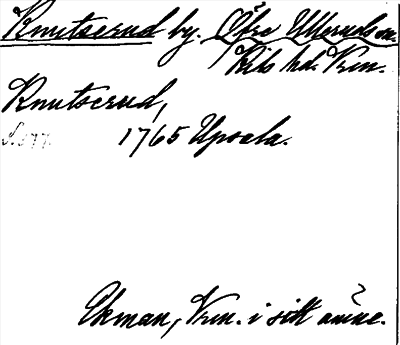 Knutserud by. Övre Ulleruds sn.
Kils hd. Vrm.
Knutserud,
S. 577. 1765 Upsala.
Ekman, Vrm. i sitt ämne.